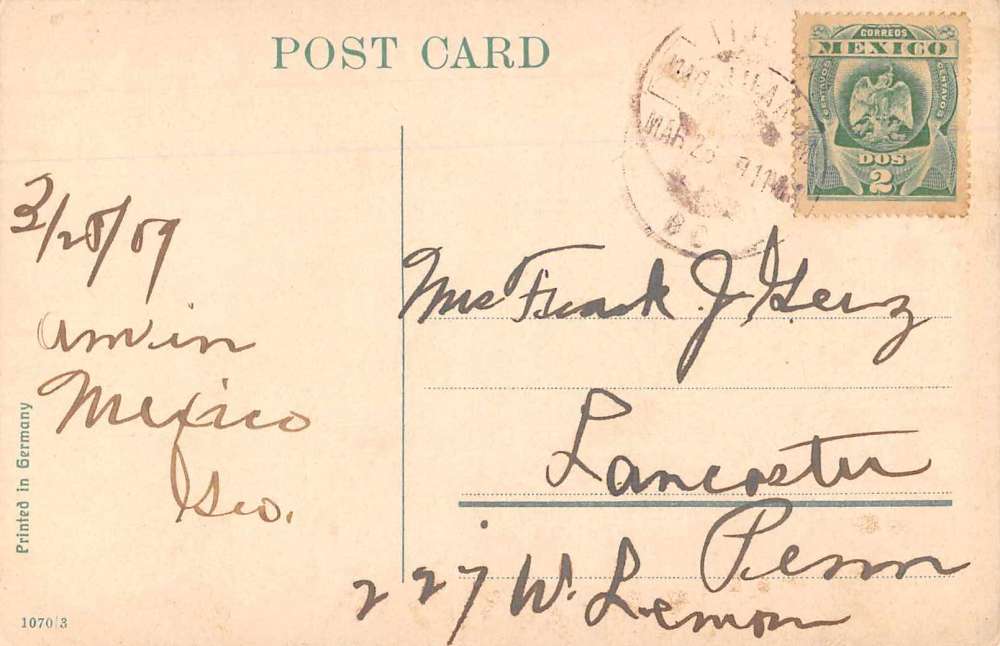 POST CARD
CORREOS
MEXICO
CENTAVOS
CENTAVOS
DOS
2
MAR 2
B C
3/28/09
am in
Mexico
Geo.
Mrs Frank J. Gerz
Lancaster
Penn
227 W. Lemon
Printed in Germany
1070/3